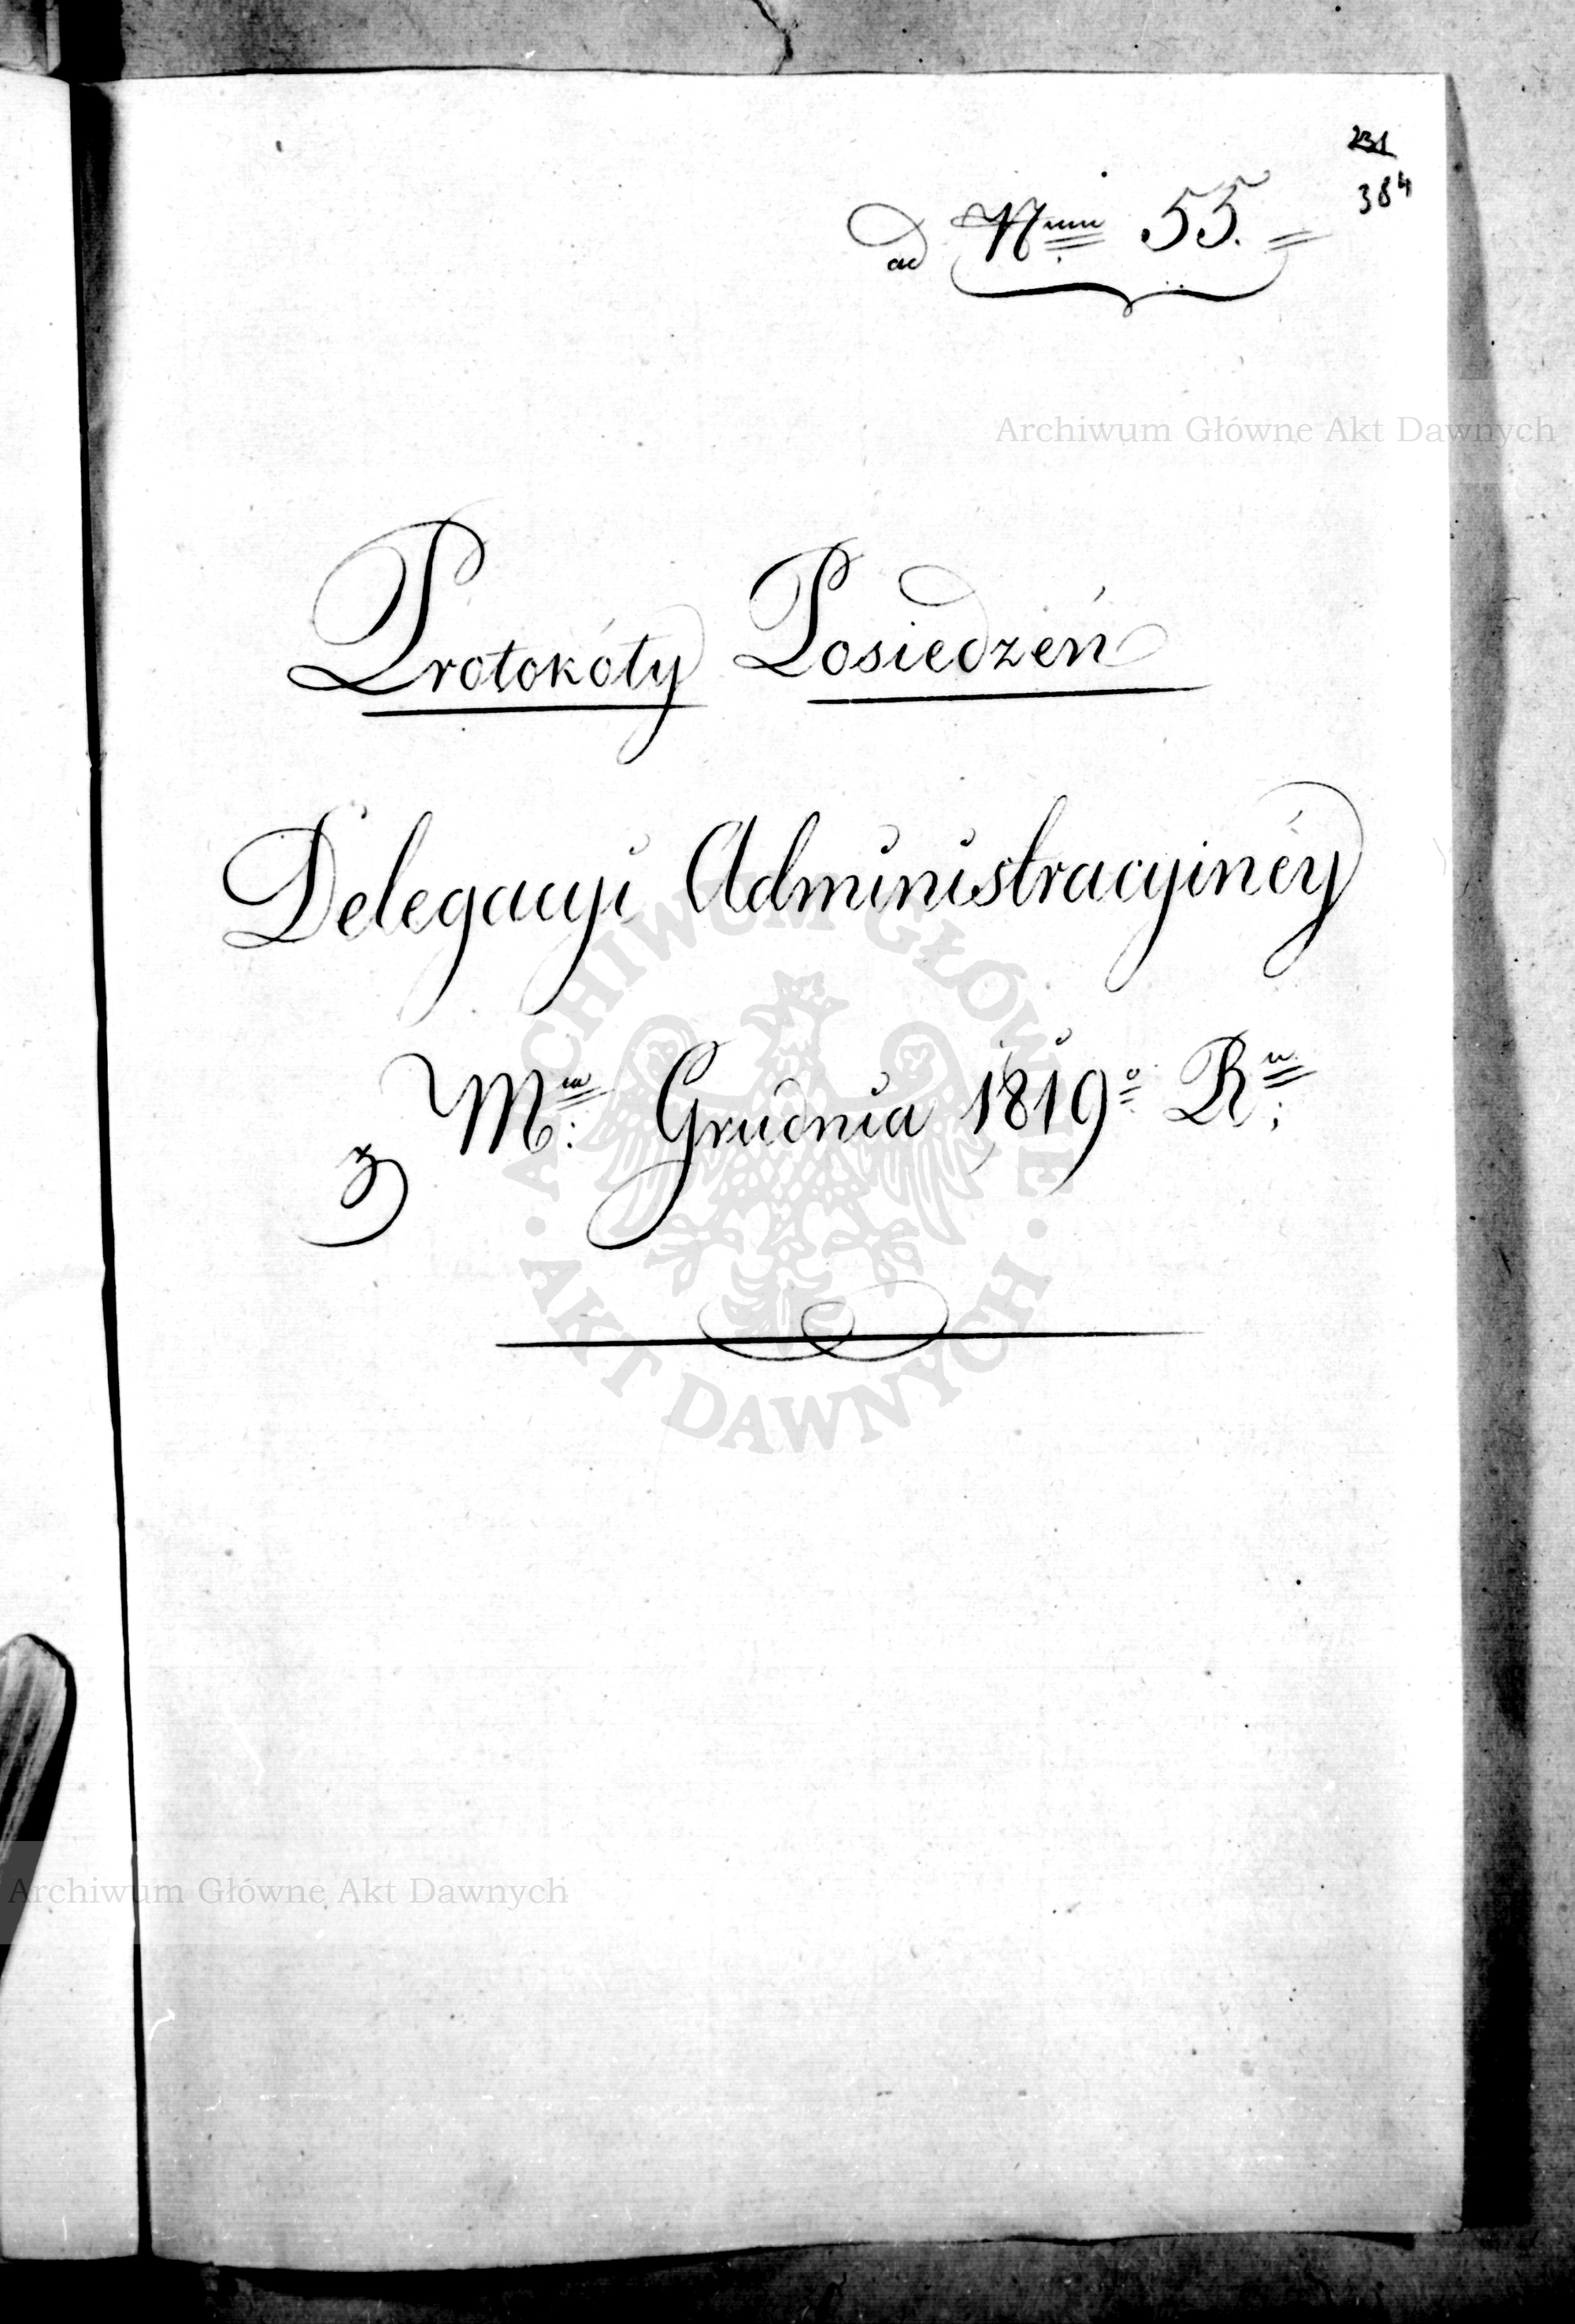 231
384
ad Nrum 55.
Archiwum Główne Akt Dawnych
Protokóły Posiedzeń
Delegacyi Administracyinéy
z Mca: Grudnia 1819o Ru:
ARCHIWUM GŁÓWNE
AKT DAWNYCH
Archiwum Główne Akt Dawnych